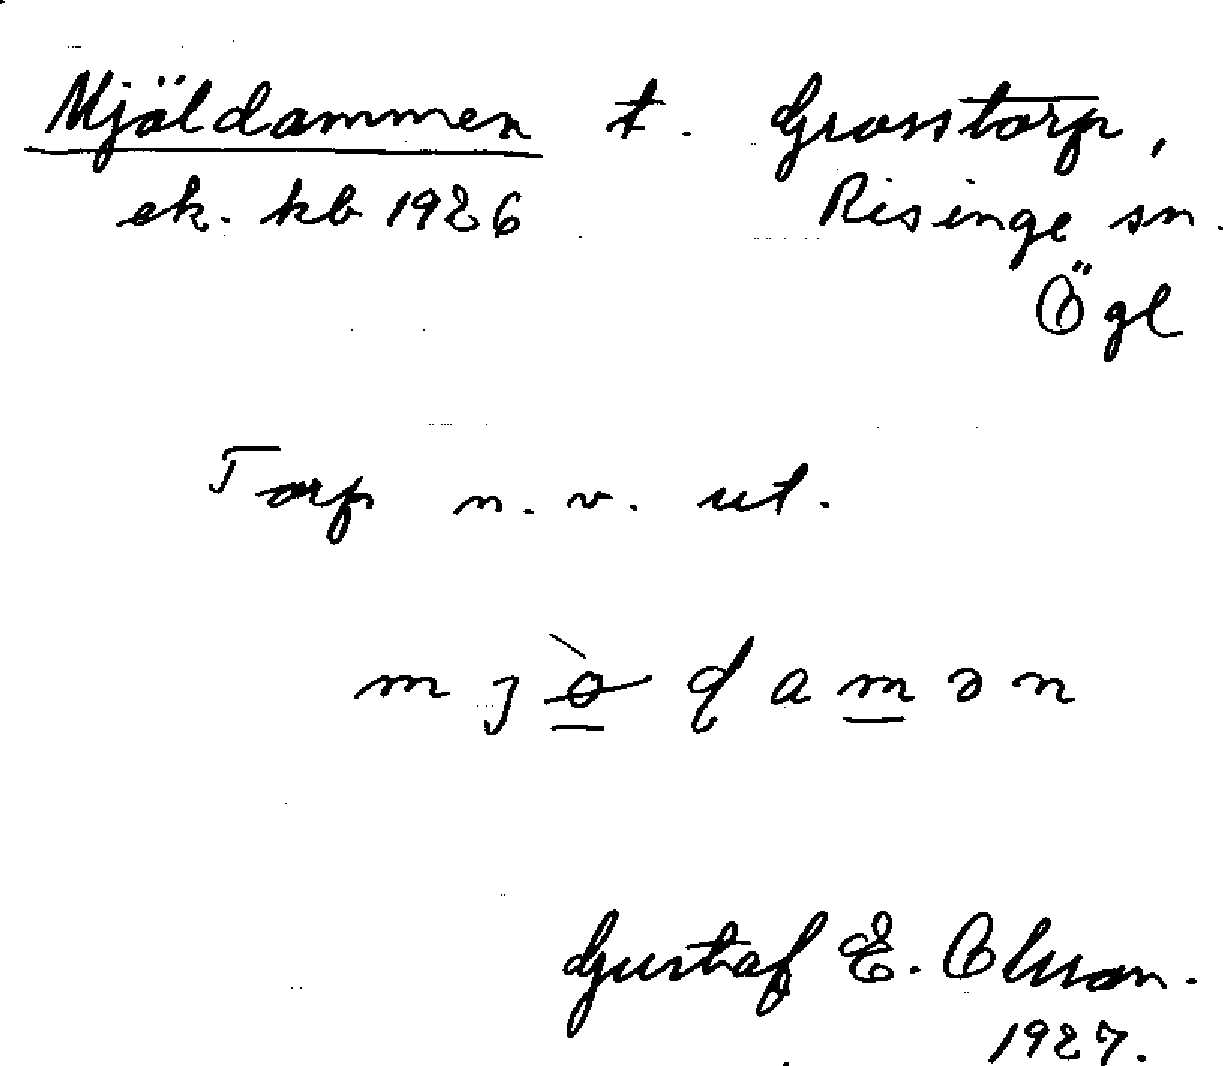 Mjöldammen t. Grosstorp,
ek. kb 1926 Risinge sn.
Ögl
Torp n.v. ut.
Gustaf E. Olsson.
1927.